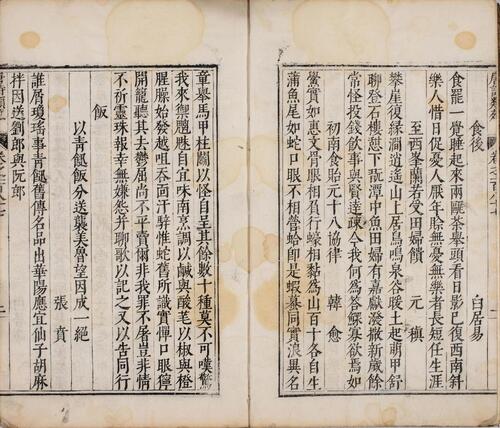 食後 白居易
食罷一覺睡起來兩甌茶舉頭看日影已復西南斜
樂人惜日促憂人厭年賒無憂無樂者長短任生涯
至西峯蘭若受田婦饋 元稹
攀崖復緣澗逍遙山上居鳥鳴泉谷暖土起萌甲舒
聊登石樓憩下翫潭中魚田婦有嘉獻潑撒新歲餘
常怪投錢飲事與賢達疎今我何爲答鰥寡欲焉如
初南食貽元十八協律 韓愈
鱟實如惠文骨眼相負行蠔相黏爲山百十各自生
蒲魚尾如蛇口眼不相營蛤即是蝦蟇同實浪異名
章舉馬甲柱鬭以怪自呈其餘數十種莫不可嘆驚
我來禦魑魅自宜味南烹調以鹹與酸芼以椒與橙
腥臊始發越咀吞面汗騂惟蛇舊所識實憚口眼獰
開籠聽其去鬱屈尚不平賣爾非我罪不屠豈非情
不祈靈珠報幸無嫌怨并聊歌以記之又以告同行
飯
以青䭀飯分送襲美魯望因成一絶
張賁
誰屑瓊瑤事青䭀舊傳名品出華陽應宜仙子胡麻
拌因送劉郎與阮郎